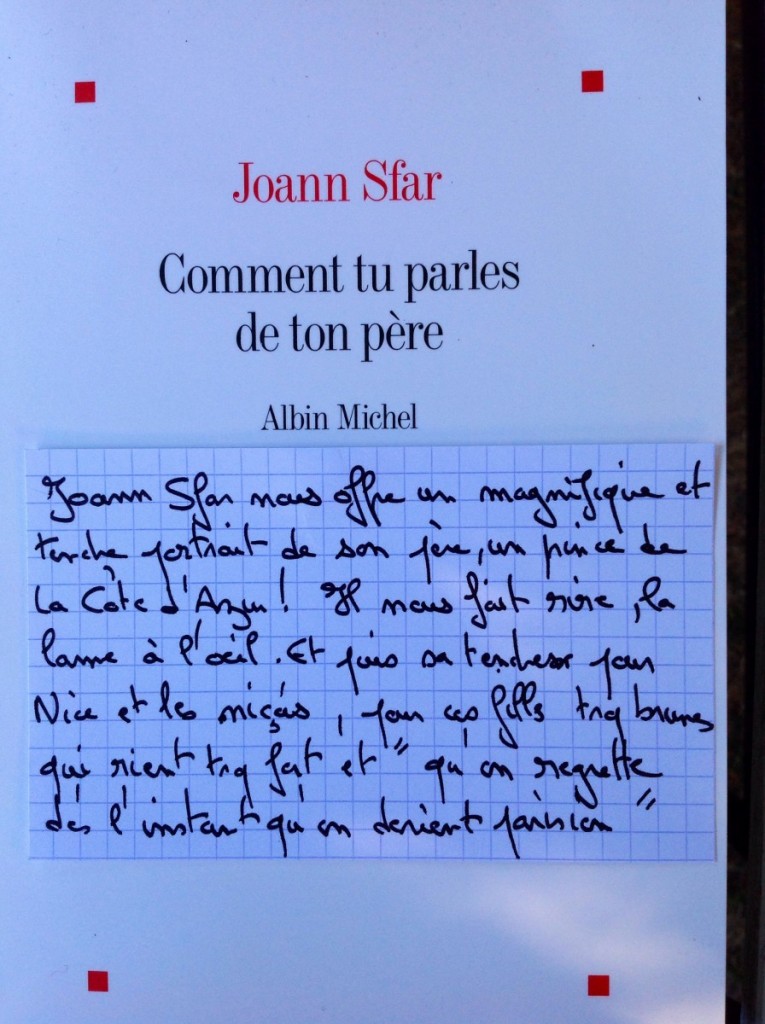 Joann Sfar
Comment tu parles
de ton père
Albin Michel
Joann Sfar nous offre un magnifique et
tendre portrait de son père, un prince de
la Côte d'Azur ! Il nous fait rire, la
larme à l'œil. Et puis sa tendresse pour
Nice et les niçois, pour ces filles trop brunes
qui rient trop fort et " qu'on regrette
dès l'instant qu'on devient parisien "